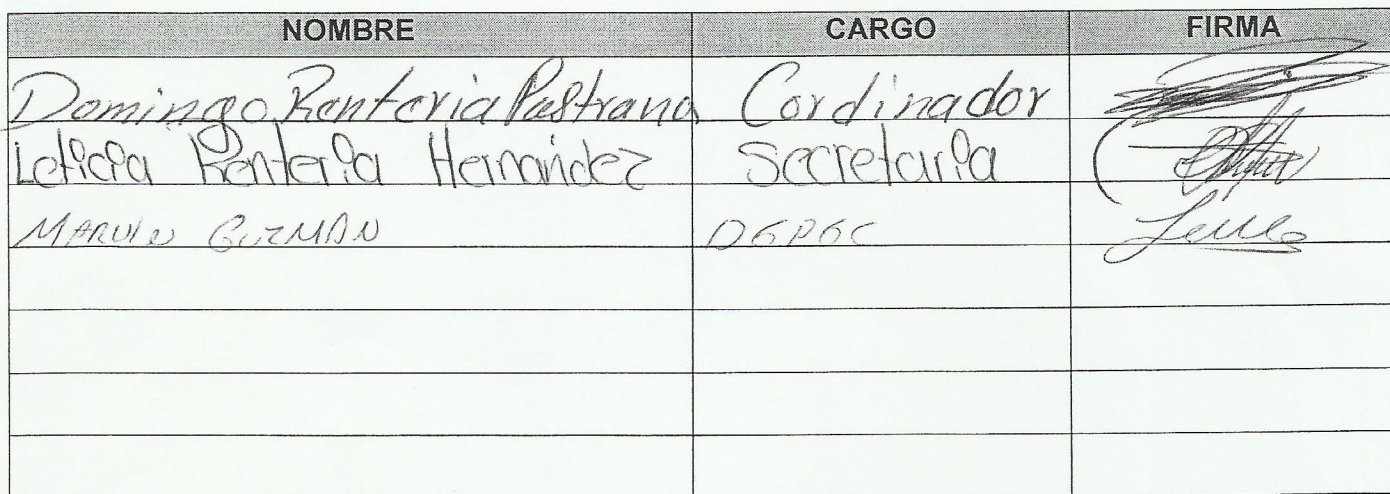 NOMBRE CARGO FIRMA
Domingo Renteria Pastrana Cordinador
Leticia Renteria Hernández secretaria
MARVIN GUZMAN DGPGC